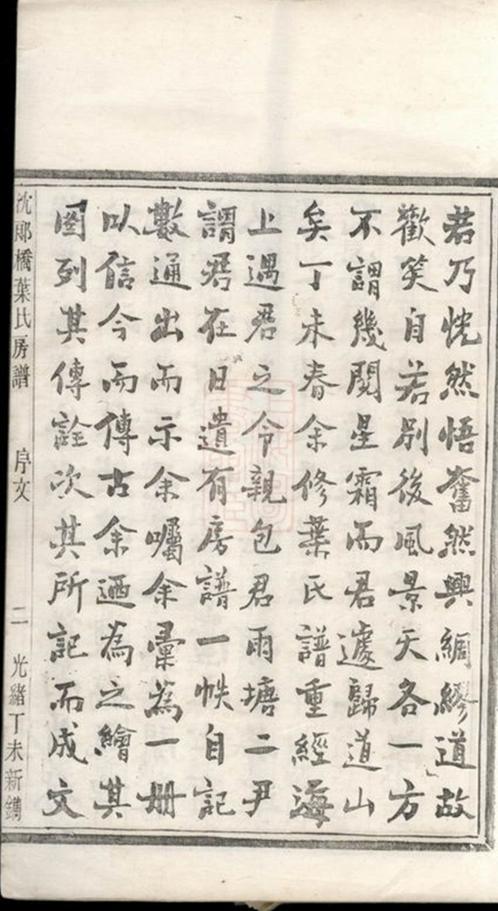 君乃恍然悟奮然興綢繆道故
歡笑自若别後風景天各一方
不謂幾閱星霜而君遽歸道山
矣丁未春余修葉氏譜重經海
上遇君之令親包君雨塘二尹
謂君在日遺有房譜一帙自記
數通出而示余囑余彚為一册
以信今而傳古余迺為之繪其
圖列其傳詮次其所記而成文
沈郎橋葉氏房譜 序文 二 光緒丁未新鐫